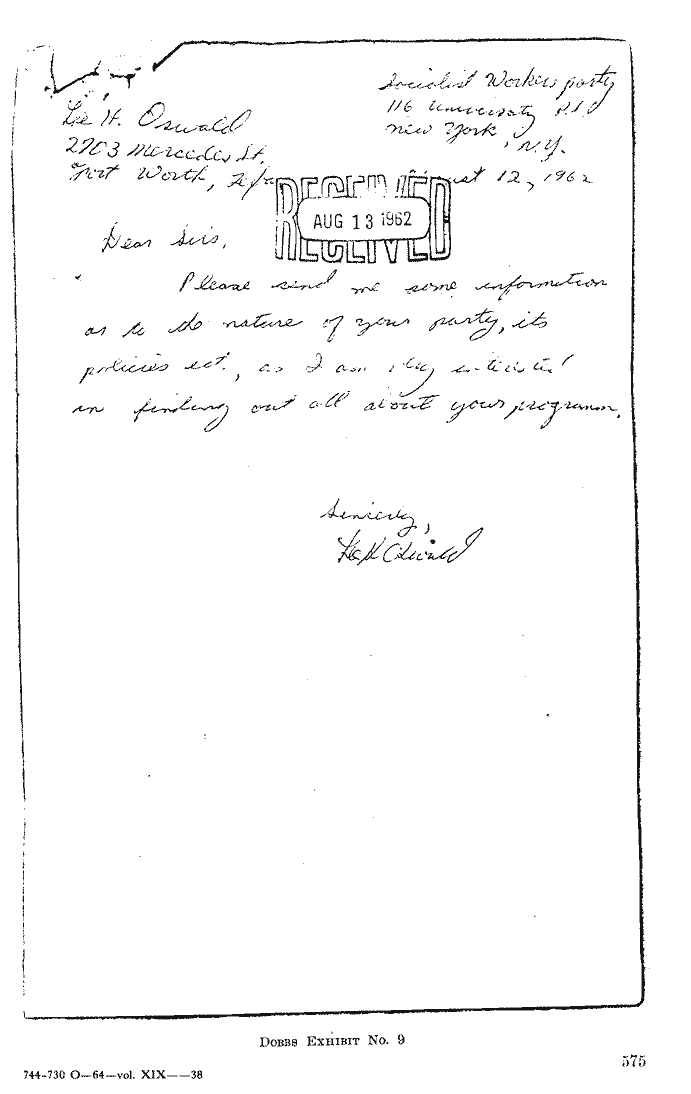 Socialist Workers party
116 University Pl
new York, N.Y.
Lee H. Oswald
2703 Mercedes St.
Fort Worth, Texas
August 12, 1962
RECEIVED
AUG 13 1962
Dear Sirs,
Please send me some information
as to de nature of your party, its
policies ect., as I am very
in finding out all about your programm.
Sincerly,
Lee H Oswald
DOBBS EXHIBIT No. 9
575
744-730 O—64—vol. XIX——38